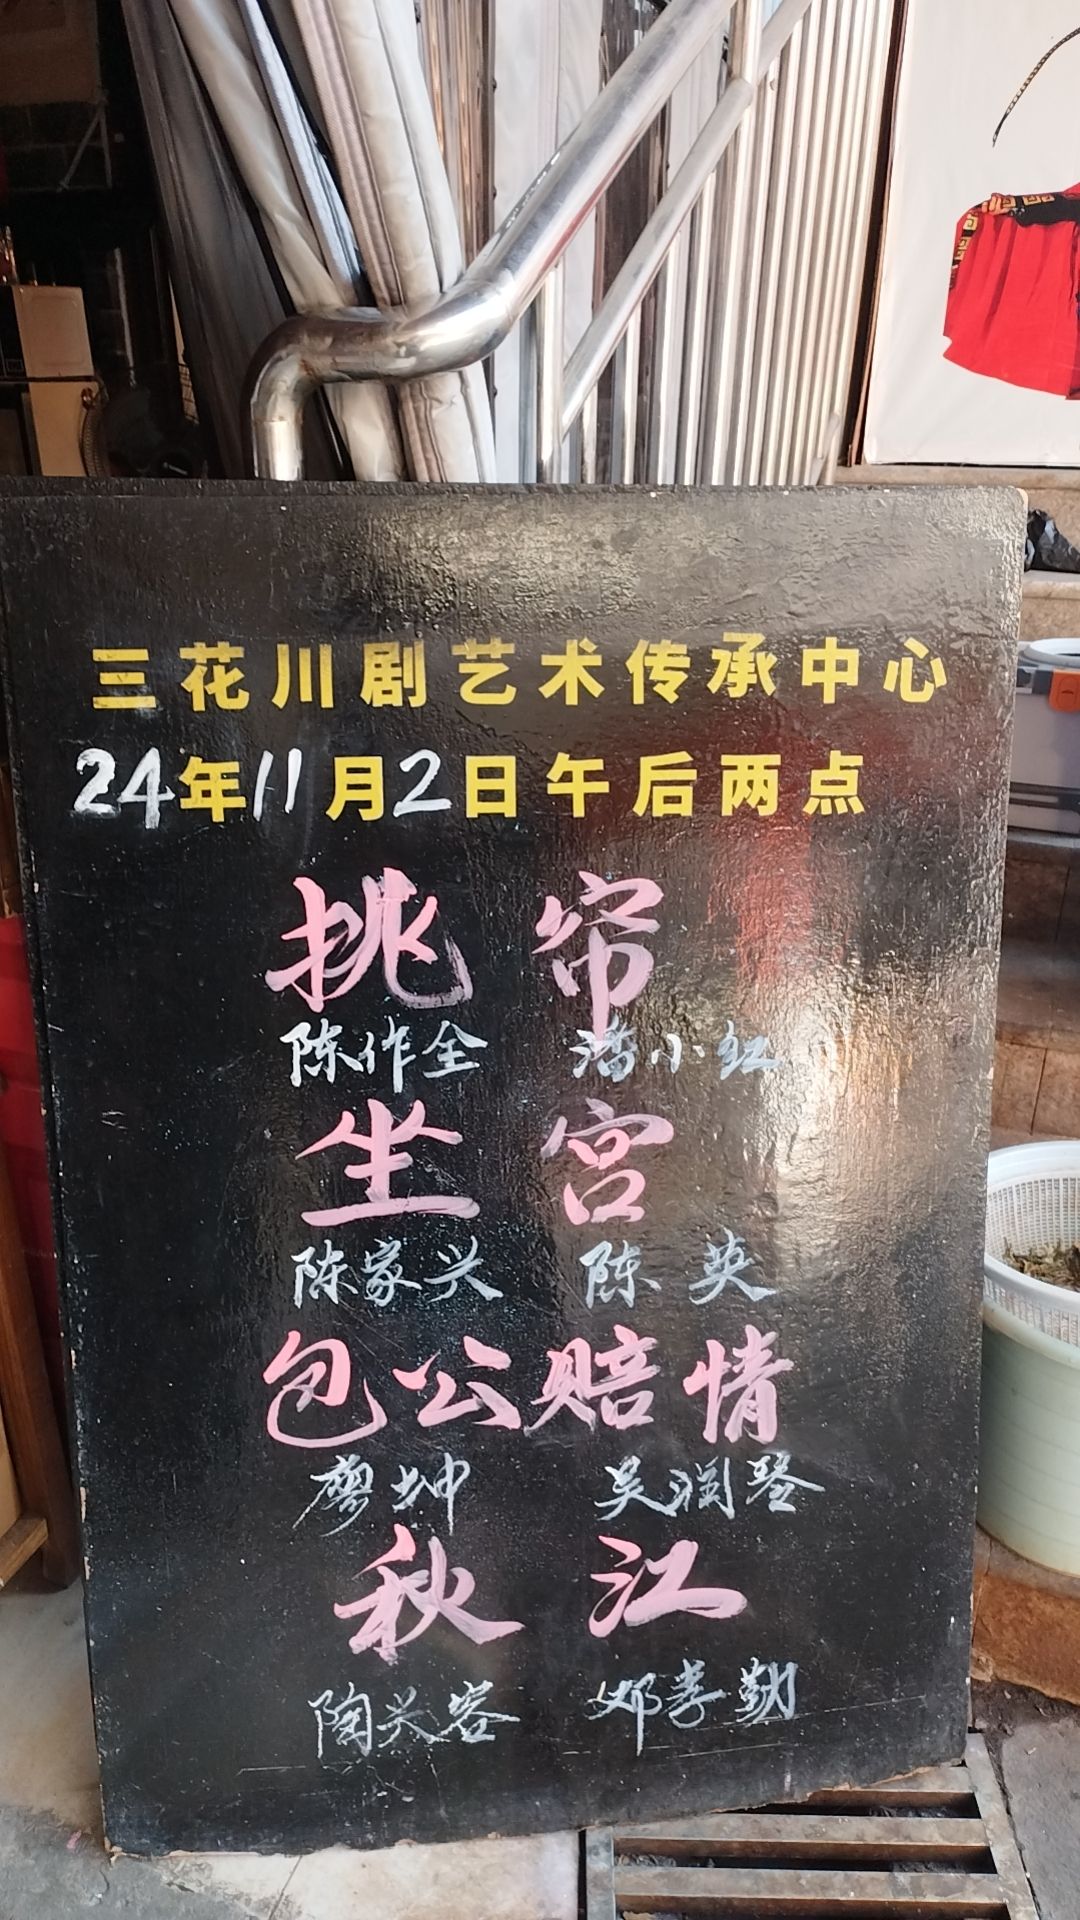 三花川剧艺术传承中心
24年11月2日午后两点
挑帘
陈作全 潘小红
坐宫
陈家兴 陈英
包公赔情
廖坤 吴润琴
秋江
陶兴容 邓孝勤